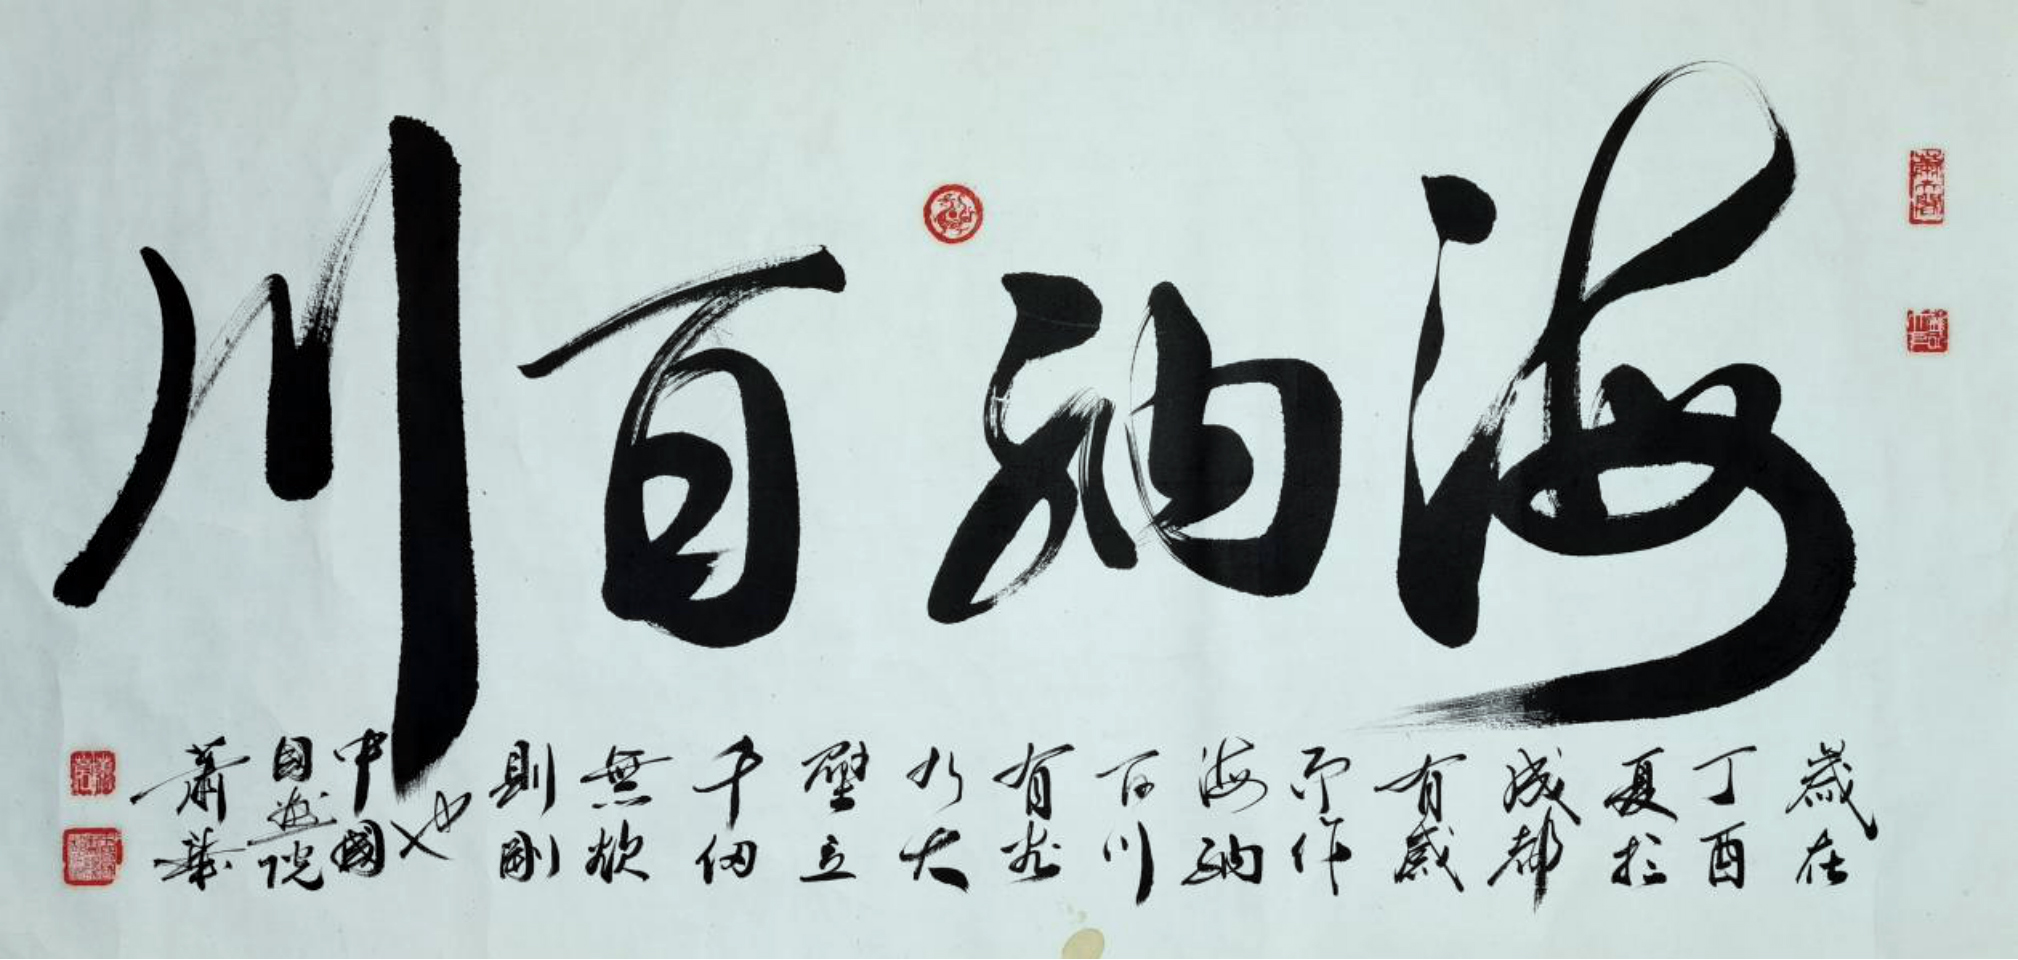 海納百川
歲在
丁酉
夏於
成都
有感
而作
海納
百川
有容
乃大
壁立
千仞
無欲
則剛
也
中國
國畫院
蕭華